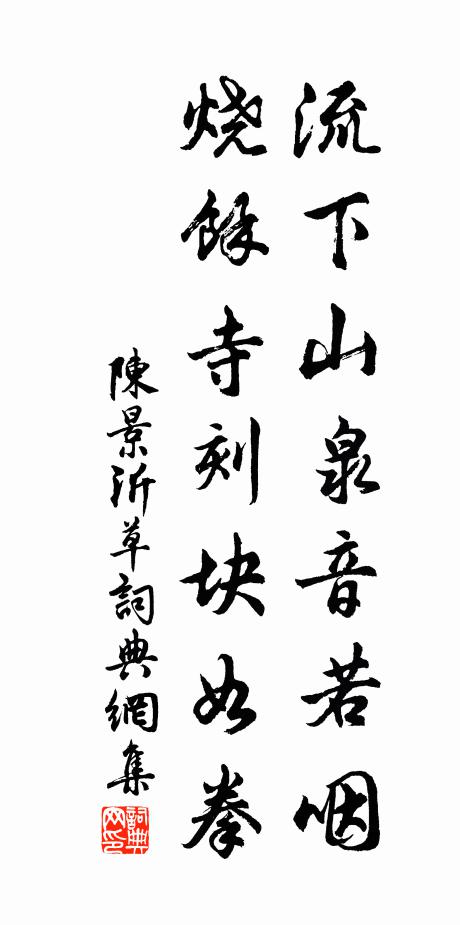 流下山泉音若咽
烧餘寺刻块如拳
陳景沂草詞典網集
詞典網印